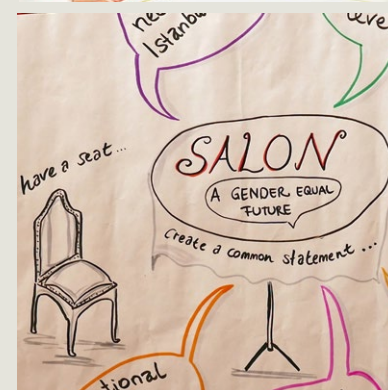 Istanbu
have a seat...
SALON
A GENDER EQUAL
FUTURE
Create a common statement ...
tional